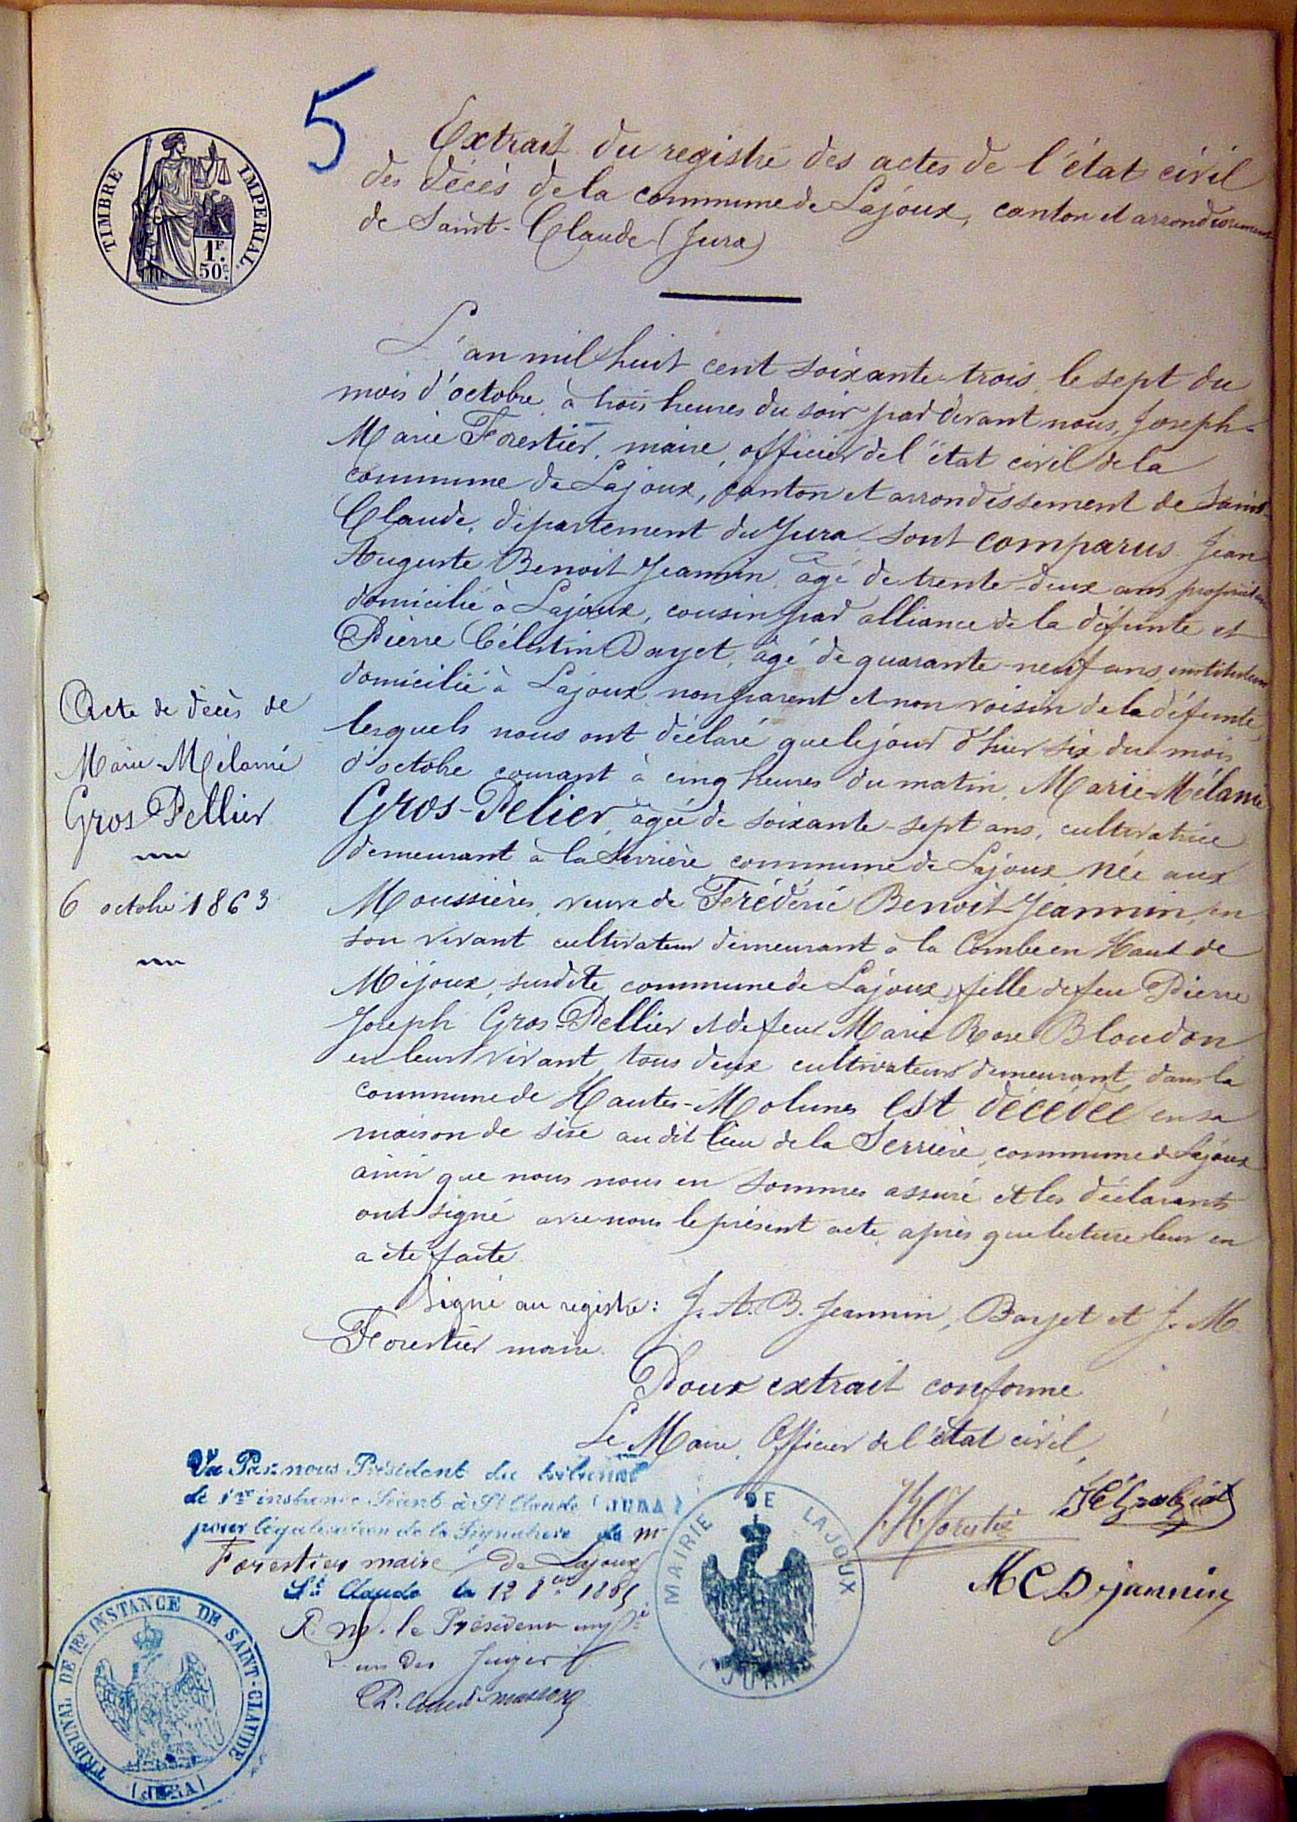 5
TIMBRE IMPERIAL
1F.
50c.
Extrait du registre des actes de l'état civil
des décès de la commune de Lajoux, canton et arrondissement
de Saint-Claude (Jura)
L'an mil huit cent soixante-trois le sept du
mois d'octobre, à trois heures du soir par devant nous, Joseph-
Marie Forestier, maire, officier de l'état civil de la
commune de Lajoux, canton et arrondissement de Saint-
Claude, département du Jura sont comparus Jean
Auguste Benoit-Jeannin, âgé de trente-deux ans propriétaire
domicilié à Lajoux, cousin par alliance de la défunte et
Pierre Célestin Dayet, âgé de quarante-neuf ans, instituteur
domicilié à Lajoux, non parent et non voisin de la défunte,
lesquels nous ont déclaré que le jour d'hier six du mois
d'octobre courant à cinq heures du matin, Marie-Mélanie
Gros-Pelier, âgée de soixante-sept ans, cultivatrice
demeurant à la Serrière, commune de Lajoux, née aux
Moussières, veuve de Frédéric Benoit-Jeannin, en
son vivant cultivateur demeurant à la Combe en Haut de
Mijoux, susdite commune de Lajoux, fille de feu Pierre
Joseph Gros-Pellier et de feue Marie Rose Blondon
en leur vivant tous deux cultivateurs demeurant dans la
commune de Hautes-Molunes est décédée en sa
maison de sise au dit lieu de la Serrière, commune de Lajoux
ainsi que nous nous en sommes assuré et les déclarants
ont signé avec nous le présent acte, après que lecture leur en
a été faite.
Signé au registre: J. A. B. Jeannin, Dayet et J. M.
Forestier maire.
Pour extrait conforme
Le Maire, Officier de l'état civil,
Acte de décès de
Marie-Mélanie
Gros Pellier
6 octobre 1863
Vu Par nous Président du tribunal
de 1re instance Séant à St Claude (JURA)
pour légalisation de la Signature de Mr
Forestier maire de Lajoux
St Claude le 12 1865
P. M. le Président
L'un des Juges
MAIRIE DE LAJOUX
JURA
Forestier
M C D jeannin
TRIBUNAL DE 1RE INSTANCE DE SAINT-CLAUDE
(JURA)